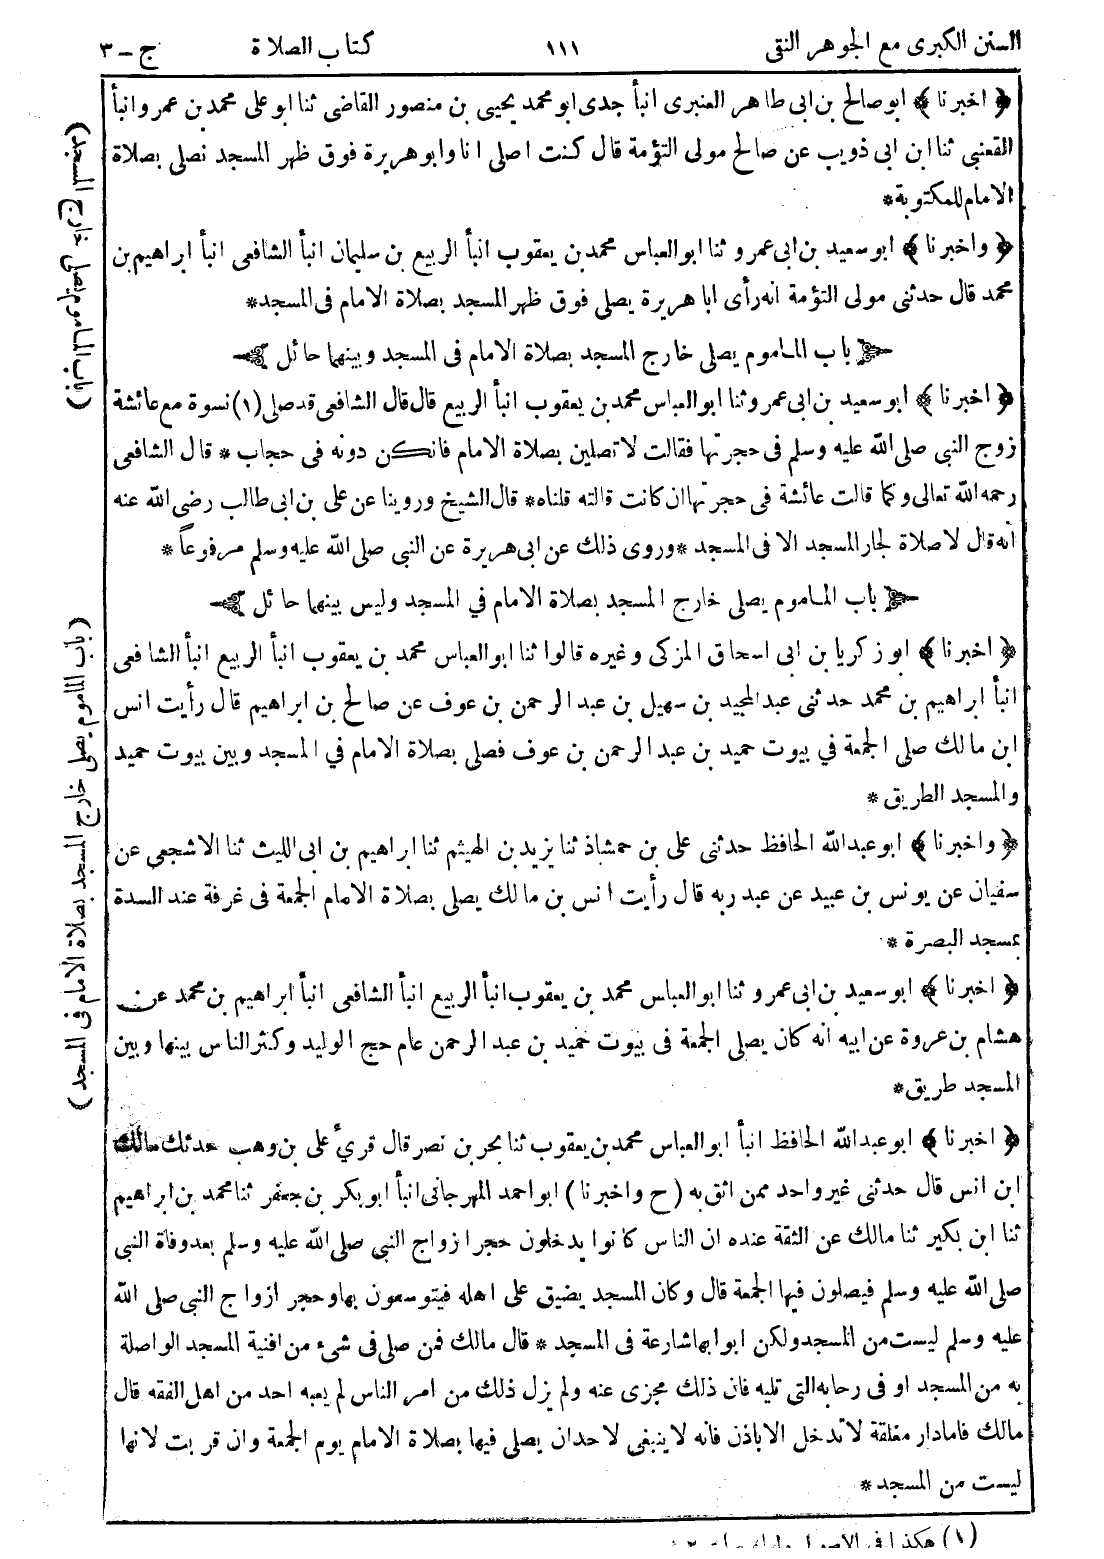 السنن الكبرى مع الجوهر النقى ١١١ كتاب الصلاة ج - ٣
﴿ اخبرنا ﴾ ابو صالح بن ابى طاهر العنبرى انبأ جدى ابو محمد يحيى بن منصور القاضى ثنا ابو على محمد بن عمر و انبأ
القعنبى ثنا ابن ابى ذويب عن صالح مولى التؤمة قال كنت اصلى انا وابو هريرة فوق ظهر المسجد نصلى بصلاة
الامام للمكتوبة *
﴿ واخبرنا ﴾ ابو سعيد بن ابى عمرو ثنا ابو العباس محمد بن يعقوب انبأ الربيع بن سليمان انبأ الشافعى انبأ ابراهيم بن
محمد قال حدثنى مولى التؤمة انه رأى ابا هريرة يصلى فوق ظهر المسجد بصلاة الامام فى المسجد *
باب المـاموم يصلى خارج المسجد بصلاة الامام فى المسجد وبينهما حائل
﴿ اخبرنا ﴾ ابو سعيد بن ابى عمرو ثنا ابو العباس محمد بن يعقوب انبأ الربيع قال قال الشافعى قد صلى (١) نسوة مع عائشة
زوج النبى صلى الله عليه وسلم فى حجرتها فقالت لا تصلين بصلاة الامام فانكن دونه فى حجاب * قال الشافعى
رحمه الله تعالى وكما قالت عائشة فى حجرتها ان كانت قالته قلناه * قال الشيخ وروينا عن على بن ابى طالب رضى الله عنه
انه قال لا صلاة لجار المسجد الا فى المسجد * وروى ذلك عن ابى هريرة عن النبى صلى الله عليه وسلم مرفوعاً *
باب المـاموم يصلى خارج المسجد بصلاة الامام في المسجد وليس بينهما حائل
﴿ اخبرنا ﴾ ابو زكريا بن ابى اسحاق المزكى وغيره قالوا ثنا ابو العباس محمد بن يعقوب انبأ الربيع انبأ الشافعى
انبأ ابراهيم بن محمد حدثنى عبد المجيد بن سهيل بن عبد الرحمن بن عوف عن صالح بن ابراهيم قال رأيت انس
ابن مالك صلى الجمعة في بيوت حميد بن عبد الرحمن بن عوف فصلى بصلاة الامام في المسجد وبين بيوت حميد
والمسجد الطريق *
﴿ واخبرنا ﴾ ابو عبد الله الحافظ حدثنى على بن حمشاذ ثنا يزيد بن الهيثم ثنا ابراهيم بن ابى الليث ثنا الاشجعى عن
سفيان عن يونس بن عبيد عن عبد ربه قال رأيت انس بن مالك يصلى بصلاة الامام الجمعة فى غرفة عند السدة
بمسجد البصرة *
﴿ اخبرنا ﴾ ابو سعيد بن ابى عمرو ثنا ابو العباس محمد بن يعقوب انبأ الربيع انبأ الشافعى انبأ ابراهيم بن محمد عن
هشام بن عروة عن ابيه انه كان يصلى الجمعة فى بيوت حميد بن عبد الرحمن عام حج الوليد وكثر الناس بينها وبين
المسجد طريق *
﴿ اخبرنا ﴾ ابو عبد الله الحافظ انبأ ابو العباس محمد بن يعقوب ثنا بحر بن نصر قال قرئ على بن وهب حدثك مالك
ابن انس قال حدثنى غير واحد ممن اثق به ( ح واخبرنا ) ابو احمد المهرجانى انبأ ابو بكر بن جعفر ثنا محمد بن ابراهيم
ثنا ابن بكير ثنا مالك عن الثقة عنده ان الناس كانوا يدخلون حجر ازواج النبى صلى الله عليه وسلم بعد وفاة النبى
صلى الله عليه وسلم فيصلون فيها الجمعة قال وكان المسجد يضيق على اهله فيتوسعون بها وحجر ازواج النبى صلى الله
عليه وسلم ليست من المسجد ولكن ابوابها شارعة فى المسجد * قال مالك فمن صلى فى شئ من افنية المسجد الواصلة
به من المسجد او فى رحابه التى تليه فان ذلك مجزى عنه ولم يزل ذلك من امر الناس لم يعبه احد من اهل الفقه قال
مالك فاما دار مغلقة لا تدخل الا باذن فانه لا ينبغى لاحد ان يصلى فيها بصلاة الامام يوم الجمعة وان قربت لانها
ليست من المسجد *
(باب المأموم يصلى خارج المسجد)
(باب المأموم يصلى خارج المسجد بصلاة الامام فى المسجد)
(١) هكذا فى الاصول